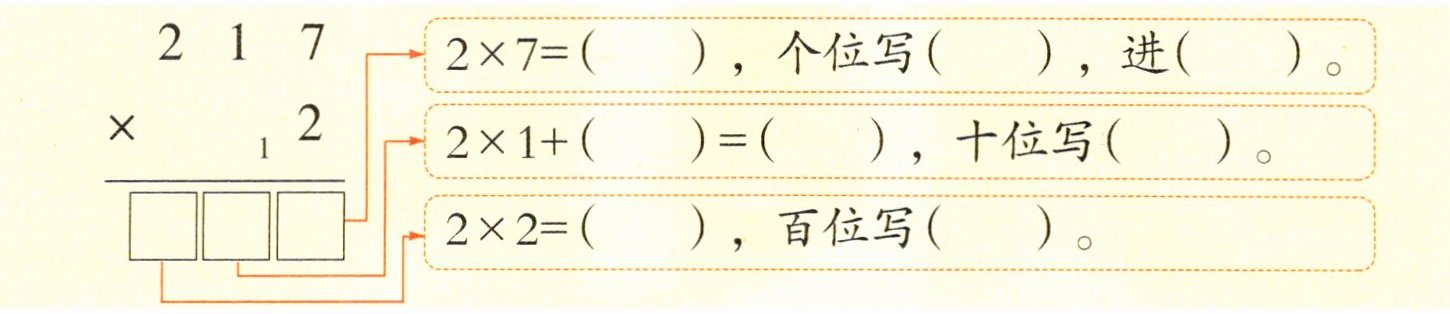 2 1 7
× 1 2
2×7=( ),个位写( ),进( )。
2×1+( )=( ),十位写( )。
2×2=( ),百位写( )。